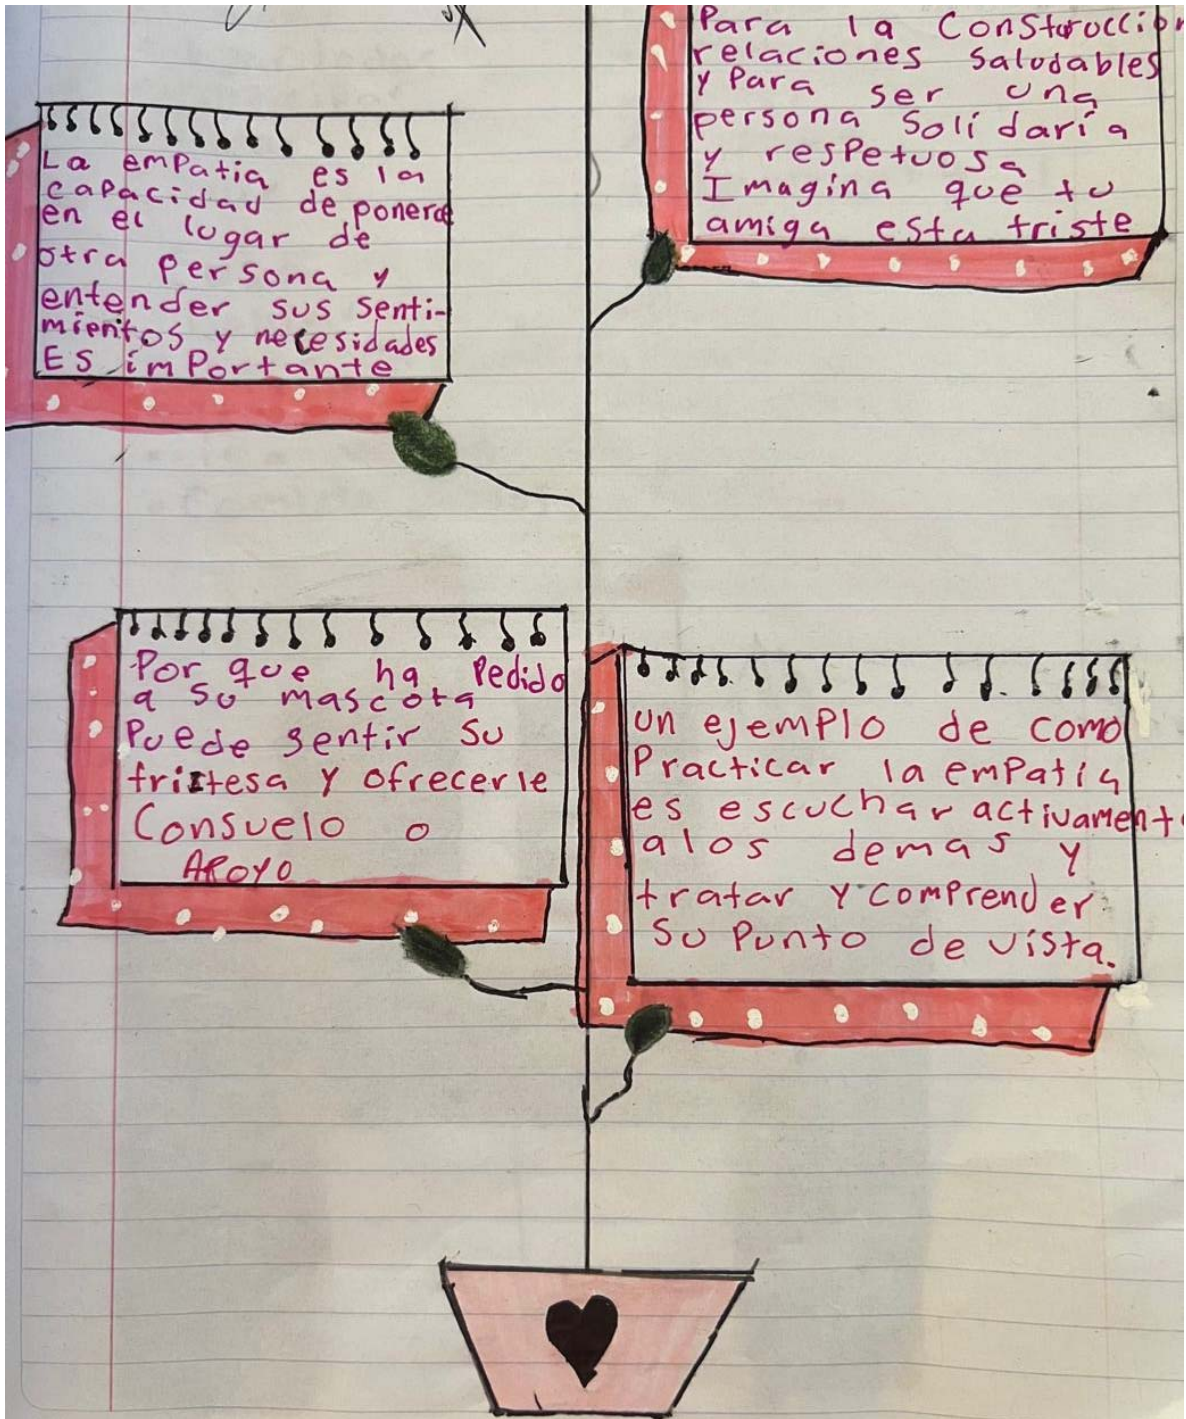 La empatia es la
capacidad de ponerce
en el lugar de
otra persona y
entender sus senti-
mientos y necesidades
Es importante
Para la Construcción
relaciones saludables
y Para ser una
persona solidaria
y respetuosa
Imagina que tu
amiga esta triste
Por que ha Pedido
a su mascota
Puede sentir su
tristesa y ofrecerle
Consuelo o
APOYO
un ejemplo de como
Practicar la empatia
es escuchar activamente
alos demas y
tratar y comprender
su Punto de vista.